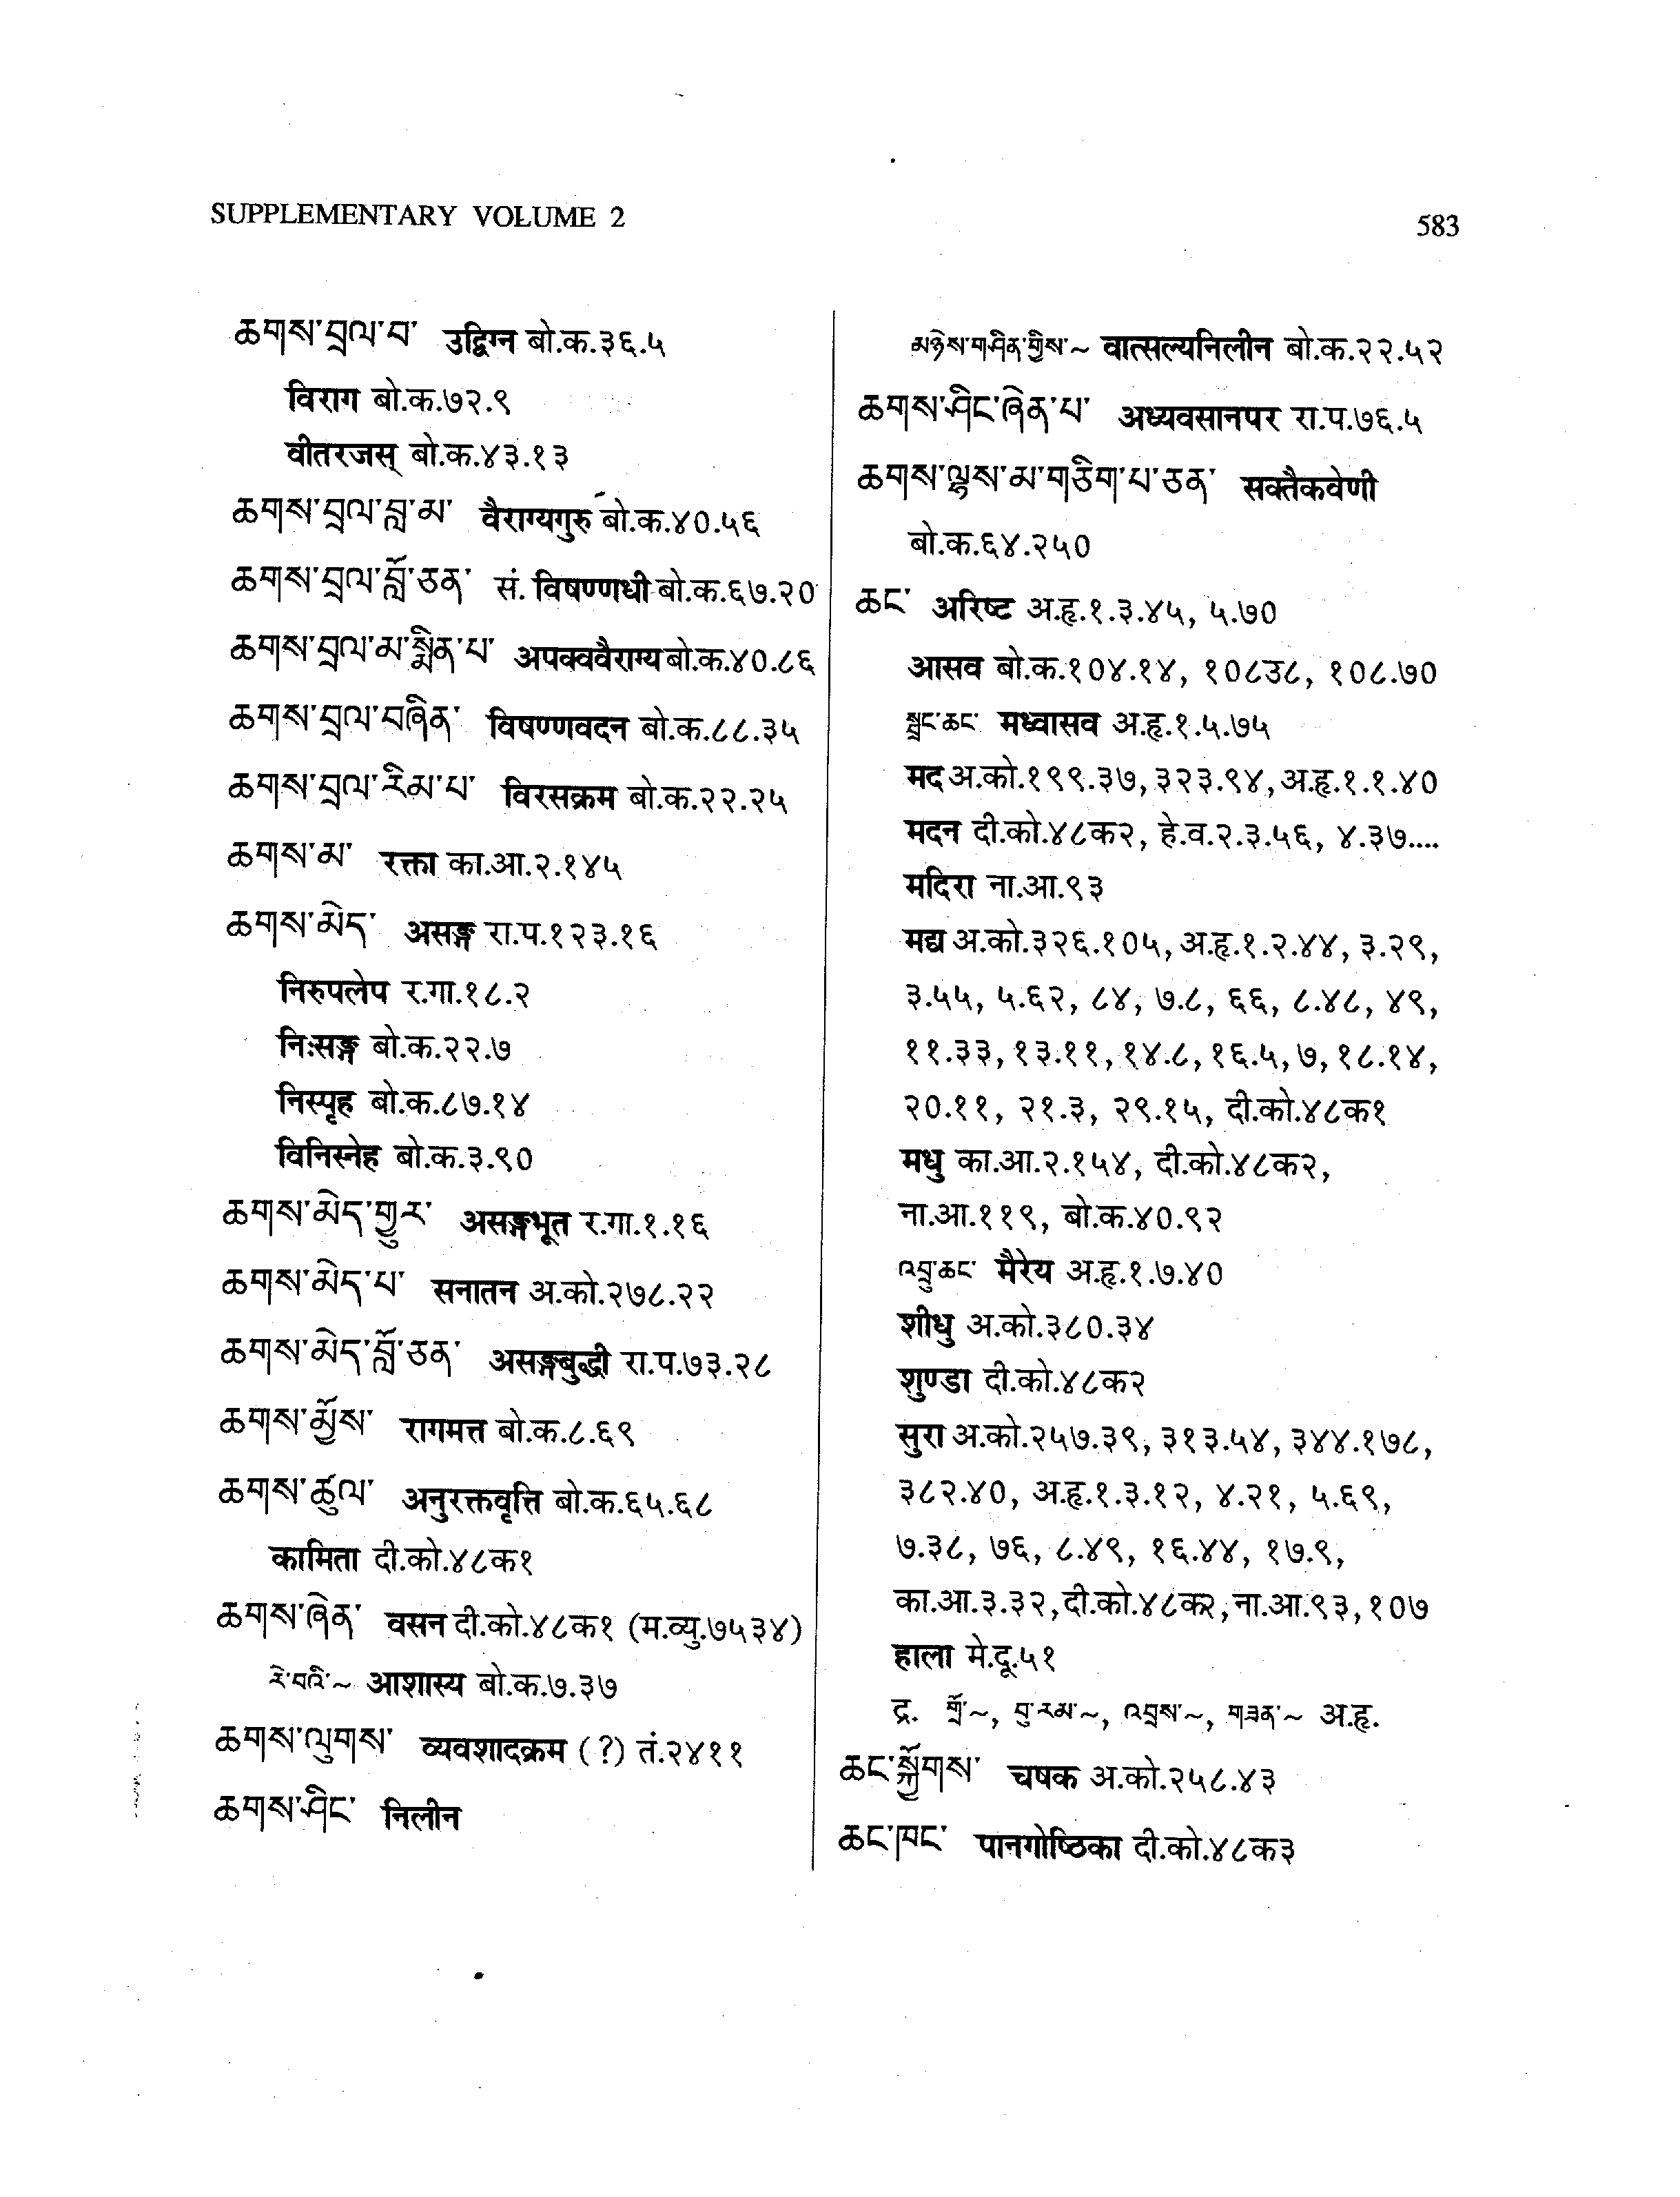 SUPPLEMENTARY VOLUME 2
583
ཆགས་བྲལ་བ་ उद्विग्न बो.क.३६.५
विराग बो.क.७२.९
वीतरजस् बो.क.४३.१३
ཆགས་བྲལ་བླ་མ་ वैराग्यगुरु बो.क.४०.५६
ཆགས་བྲལ་བློ་ཅན་ सं. विषण्णधी बो.क.६७.२०
ཆགས་བྲལ་མ་སྨིན་པ་ अपक्ववैराग्य बो.क.४०.८६
ཆགས་བྲལ་བཞིན་ विषण्णवदन बो.क.८८.३५
ཆགས་བྲལ་རིམ་པ་ विरसक्रम बो.क.२२.२५
ཆགས་མ་ रक्ता का.आ.२.१४५
ཆགས་མེད་ असङ्ग रा.प.१२३.१६
निरुपलेप र.गा.१८.२
निःसङ्ग बो.क.२२.७
निस्पृह बो.क.८७.१४
विनिस्नेह बो.क.३.९०
ཆགས་མེད་གྱུར་ असङ्गभूत र.गा.१.१६
ཆགས་མེད་པ་ सनातन अ.को.२७८.२२
ཆགས་མེད་བློ་ཅན་ असङ्गबुद्धी रा.प.७३.२८
ཆགས་མྱོས་ रागमत्त बो.क.८.६९
ཆགས་ཚུལ་ अनुरक्तवृत्ति बो.क.६५.६८
कामिता दी.को.४८क१
ཆགས་ཞེན་ वसन दी.को.४८क१ (म.व्यु.७५३४)
རེ་བའི་~ आशास्य बो.क.७.३७
ཆགས་ལུགས་ व्यवशादक्रम (?) तं.२४११
ཆགས་ཤིང་ निलीन
མཉེས་གཤིན་གྱིས་~ वात्सल्यनिलीन बो.क.२२.५२
ཆགས་ཤིང་ཞེན་པ་ अध्यवसानपर रा.प.७६.५
ཆགས་ལྷས་མ་གཅིག་པ་ཅན་ सक्तैकवेणी
बो.क.६४.२५०
ཆང་ अरिष्ट अ.हृ.१.३.४५, ५.७०
आसव बो.क.१०४.१४, १०८३८, १०८.७०
སྦྲང་ཆང་ मध्वासव अ.हृ.१.५.७५
मद अ.को.१९९.३७, ३२३.९४, अ.हृ.१.१.४०
मदन दी.को.४८क२, हे.व.२.३.५६, ४.३७....
मदिरा ना.आ.९३
मद्य अ.को.३२६.१०५, अ.हृ.१.२.४४, ३.२९,
३.५५, ५.६२, ८४, ७.८, ६६, ८.४८, ४९,
११.३३, १३.११, १४.८, १६.५, ७, १८.१४,
२०.११, २१.३, २९.१५, दी.को.४८क१
मधु का.आ.२.१५४, दी.को.४८क२,
ना.आ.११९, बो.क.४०.९२
འབྲུ་ཆང་ मैरेय अ.हृ.१.७.४०
शीधु अ.को.३८०.३४
शुण्डा दी.को.४८क२
सुरा अ.को.२५७.३९, ३१३.५४, ३४४.१७८,
३८२.४०, अ.हृ.१.३.१२, ४.२१, ५.६९,
७.३८, ७६, ८.४९, १६.४४, १७.९,
का.आ.३.३२, दी.को.४८क२, ना.आ.९३, १०७
हाला मे.दू.५१
द्र. གྲོ་~, བུ་རམ་~, འབྲས་~, གཟན་~ अ.हृ.
ཆང་སྐྱོགས་ चषक अ.को.२५८.४३
ཆང་ཁང་ पानगोष्ठिका दी.को.४८क३